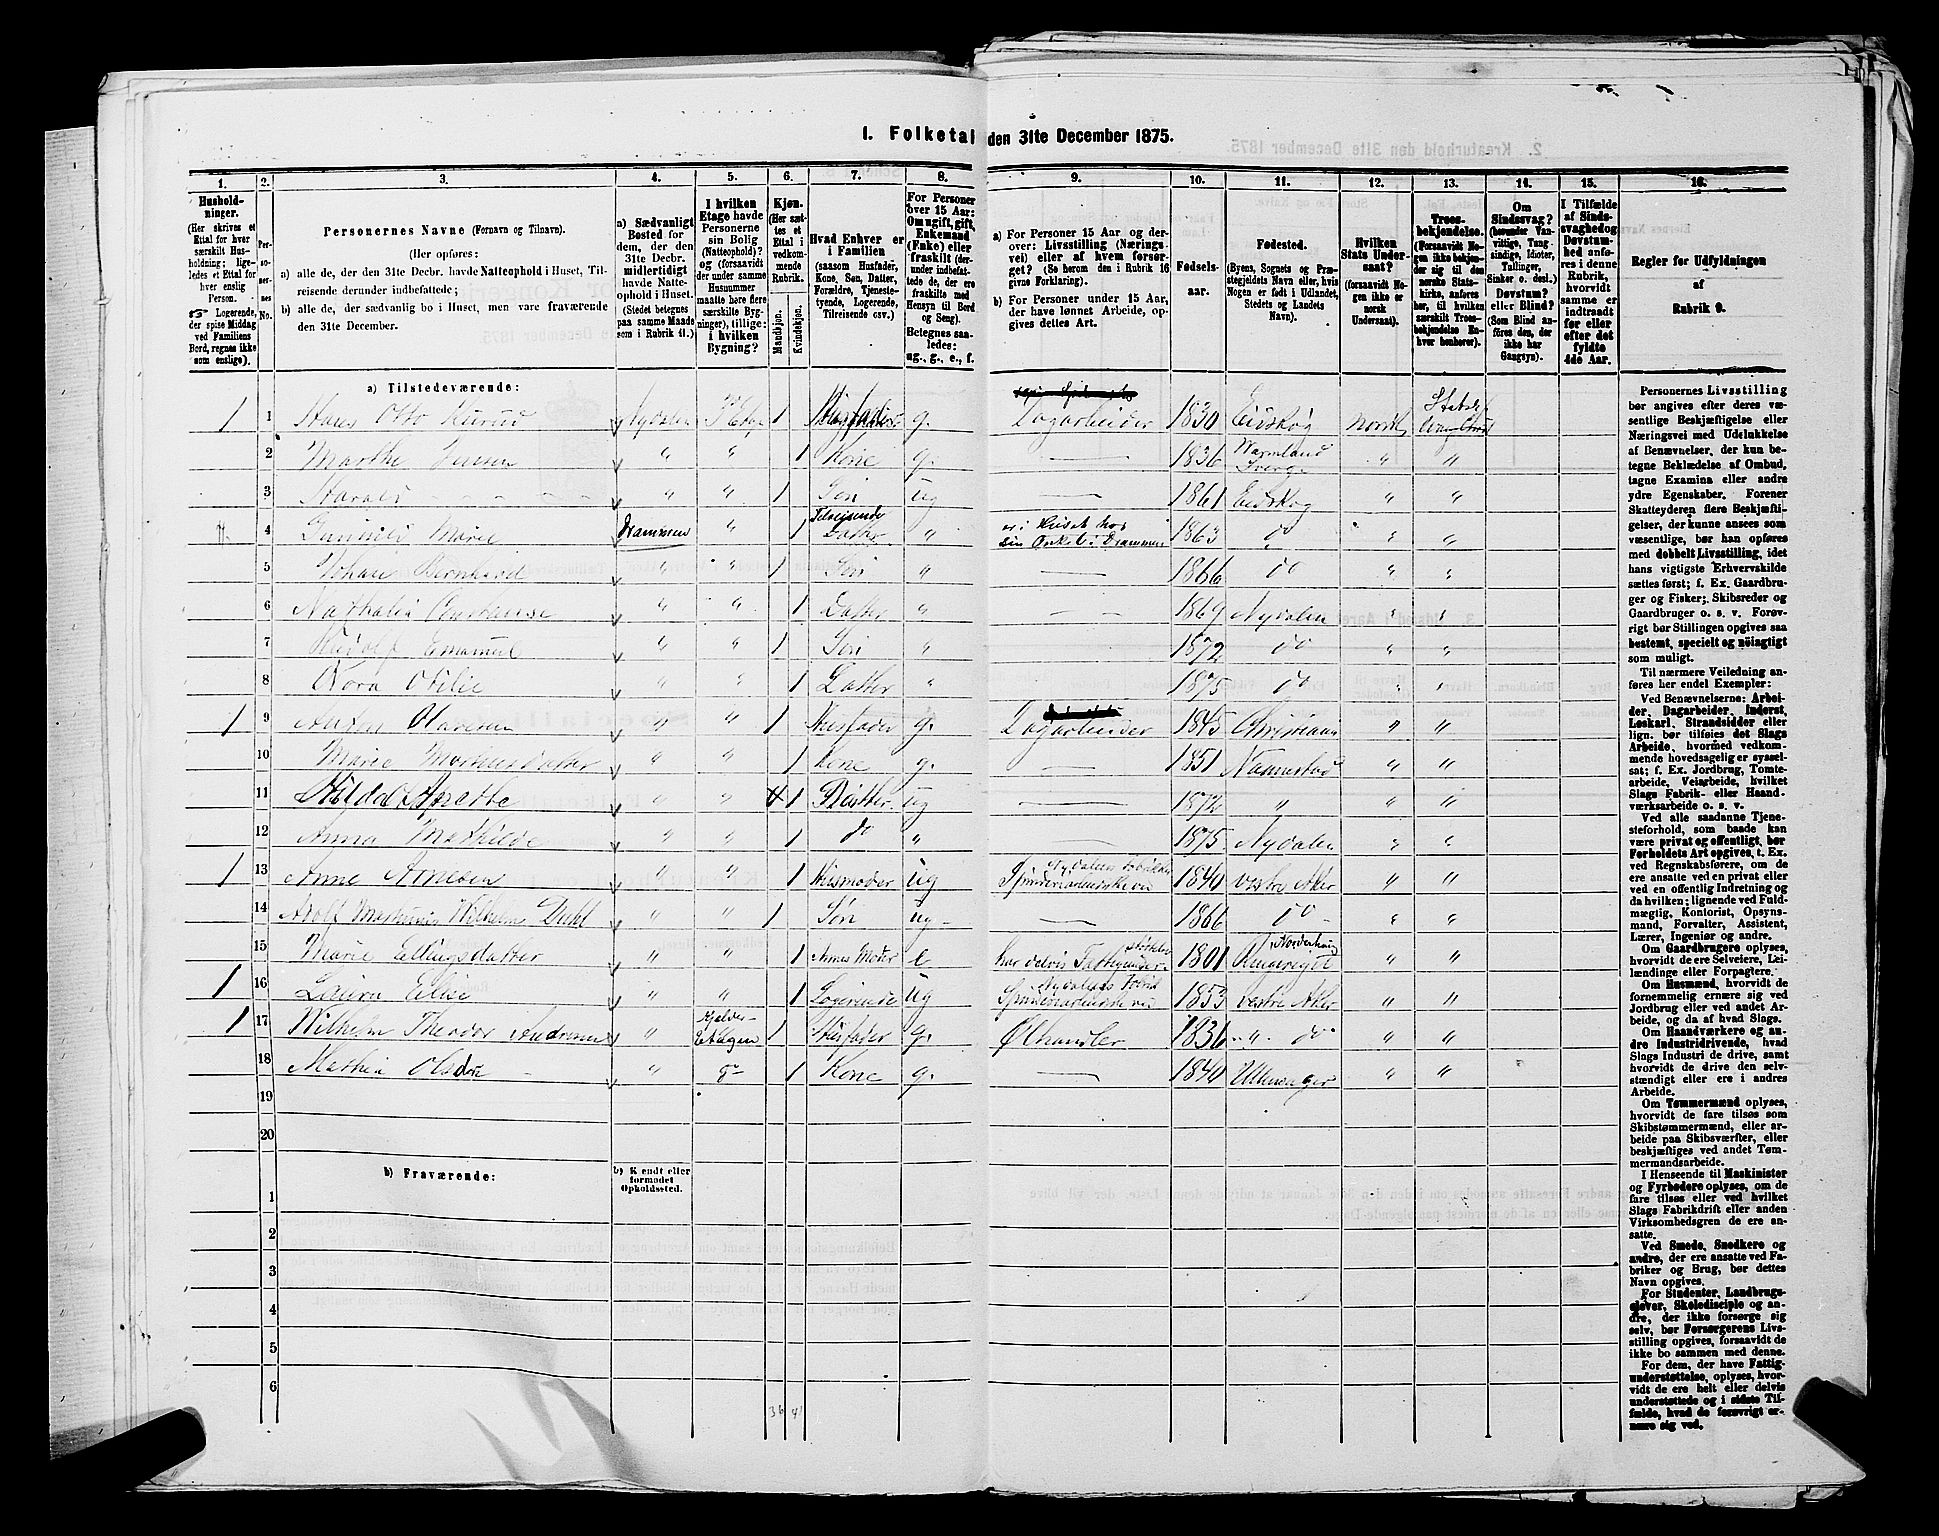 1. Folketal den 31te December 1875.
1. 2. 3. 4. 5. 6. 7. 8. 9. 10. 11. 12. 13. 14. 15. 16.
Husholdninger.
(Her skrives et
Ettal for hver
særskilt Husholdning;
ligeledes
et Ettal for
hver enslig
Person.
Logerende,
der spise Middag
ved Familiens
Bord, regnes ikke
som enslige).
Personernes No.
Personernes Navne (Fornavn og Tilnavn).
(Her opføres:
a) alle de, den 31te Decbr. havde Natteophold i Huset, Tilreisende
derunder indbefattede;
b) alle de, der sædvanlig bo i Huset, men vare fraværende
den 31te December.
a) Sædvanligt
Bosted for
dem, der den
31te Decbr.
midlertidigt
havde Natteophold
i Huset.
(Stedet betegnes
paa samme Maade
som i Rubrik 11.)
I hvilken
Etage havde
Personerne
sin Bolig
(Natteophold)?
og (forsaavidt
der under samme
Husnummer
maatte høre flere
særskilte Bygninger),
tillige:
i hvilken
Bygning?
Kjøn.
(Her sættes
et
Ettal i
vedkommende
Rubrik.
Mandkjøn.
Kvindekjøn.
Hvad Enhver er
i Familien
(saasom Husfader,
Kone, Søn, Datter,
Forældre, Tjenestetyende,
Logerende,
Tilreisende osv.)
For Personer
over 15 Aar:
Om ugift, gift,
Enkemand
(Enke) eller
fraskilt (derunder
indbefattede
de, der ere
fraskilte med
Hensyn til Bord
og Seng).
Betegnes saaledes:
ug., g., e., f.
a) For Personer 15 Aar og derover:
Livsstilling (Næringsvei)
eller af hvem forsørget?
(Se herom den i Rubrik 16
givne Forklaring).
b) For Personer under 15 Aar,
der have lønnet Arbeide, opgives
dettes Art.
Fødselsaar.
Fødested.
(Byens, Sognets og Præstegjeldets
Navn, eller, hvis
Nogen er født i Udlandet,
Stedets og Landets
Navn).
Hvilken
Stats Undersaat?
(forsaavidt Nogen
ikke er
norsk
Undersaat).
Troesbekjendelse.
(Forsaavidt Nogen
ikke bekjender
sig til den
norske Statskirke,
anføres
her, til hvilken
særskilt Troesbekjendelse
Enhver
henhører).
Om
Sindssvag?
(herunder Vanvittige,
Tungsindige,
Idioter,
Tullinger,
Sinker o. desl.)
Døvstum?
eller Blind?
(Som Blind anføres
den, der
ikke har
Gangsyn).
I Tilfælde
af Sindssvaghed
og
Døvstumhed
anføres
i denne
Rubrik,
hvorvidt
samme er
indtraadt
før eller
efter det
fyldte
4de Aar.
Regler for Udfyldningen
af
Rubrik 9.
a) Tilstedeværende:
1 1 Hans Otto Kurud Nydalen 1 Husfader g. Dagarbeider 1830 Eidskog norsk
2 Marthe Jensen " " 1 Kone g. 1836 Warmland " "
3 Harald " " 1 Søn ug 1861 Eidskog " "
4 Gunnild Marie Drammen " 1 Tilreisende Datter " er i Huset hos sin Onkel i Drammen 1863 do " "
5 Johan Bernhard " " 1 Søn " 1866 do " "
6 Nathalia " " 1 Datter " 1869 Nydalen " "
7 Emanuel " " 1 Søn " 1872 do " "
8 Nora Otilie " " 1 Datter " 1875 do " "
1 9 Anton Olavesen " " 1 Husfader g. Dagarbeider 1845 Christiania " "
10 Marie Mathisdatter " " 1 Kone g. 1851 Nannestad " "
11 Hilda Anette " " 1 Datter ug 1872 " " "
12 Anna Mathilde " " 1 do " 1875 Nydalen " "
1 13 Anne Arnesen " " 1 Husmoder ug Nydalens 1840 vestre Aker " "
14 Adolf Wilhelm Dahl " " 1 Søn ug 1866 do " "
15 Marie Ellingsdatter " " 1 Annes Moder e har delvis 1801 Norderhoug " "
1 16 Laura Elise " " 1 Logerende ug Nydalens 1853 vestre Aker " "
1 17 Wilhelm Theodor Andresen " Kjelder-Etagen 1 Husfader g. Ølhandler 1836 " do " "
18 Mathea Olsdtr " do 1 Kone g. 1840 Ullensager " "
19
20
b) Fraværende:
b) Kjendt eller
formodet
Opholdssted.
1
2
3
4
5
6
36 41
Personernes Livsstilling
bør angives efter deres væsentlige
Beskjæftigelse eller
Næringsvei med Udelukkelse
af Benævnelser, der kun betegne
Beklædelse af Ombud,
tagne Examina eller andre
ydre Egenskaber. Forener
Skatteyderen flere Beskjæftigelser,
der kunne ansees som
væsentlige, bør han opføres
med dobbelt Livsstilling, idet
hans vigtigste Erhvervskilde
sættes først; f. Ex. Gaardbruger
og Fisker; Skibsreder og
Gaardbruger o. s. v. Forøvrigt
bør Stillingen opgives saa
bestemt, specielt og nøiagtigt
som muligt.
Til nærmere Veiledning anføres
her endel Exempler:
Ved Benævnelserne: Arbeider,
Dagarbeider, Inderst,
Løskarl, Strandsidder eller
lign. bør tilføies det Slags
Arbeide, hvormed vedkommende
hovedsagelig er sysselsat;
f. Ex. Jordbrug, Tomtearbeide,
Veiarbeide, hvilket
Slags Fabrik- eller Haandværksarbeide
o. s. v.
Ved alle saadanne Tjenesteforhold,
som baade kan
være privat og offentligt, bør
Forholdets Art opgives, t. Ex.
ved Regnskabsførere, om de
ere ansatte ved en privat eller
ved en offentlig Indretning og
da hvilken; lignende ved Fuldmægtig,
Kontorist, Opsynsmand,
Forvalter, Assistent,
Lærer, Ingeniør og andre.
Om Gaardbrugere oplyses,
hvorvidt de ere Selveiere, Leilændinge
eller Forpagtere.
Om Husmænd, hvorvidt de
fornemmelig ernære sig ved
Jordbrug eller ved andet Arbeide,
og da af hvad Slags.
Om Haandværkere og andre
Industridrivende, hvad
Slags Industri de drive, samt
hvorvidt de drive den selvstændigt
eller ere i andres
Arbeide.
Om Tømmermænd oplyses,
hvorvidt de fare tilsøs som
Skibstømmermænd, eller arbeide
paa Skibsværfter, eller
beskjæftiges ved andet Tømmermandsarbeide.
I Henseende til Maskinister
og Fyrbødere oplyses, om de
fare tilsøs eller ved hvilket
Slags Fabrikdrift eller anden
Virksomhedsgren de ere ansatte.
Ved Smede, Snedkere og
andre, der ere ansatte ved Fabriker
og Brug, bør dettes
Navn opgives.
For Studenter, Landbrugselever,
Skoledisciple og andre,
der ikke forsørge sig
selv, bør Forsørgerens Livsstilling
opgives, forsaavidt de
ikke bo sammen med denne.
For dem, der have Fattigunderstøttelse,
oplyses, hvorvidt
de ere helt eller delvis
understøttede og i sidste Tilfælde,
hvad de forøvrigt ernære
sig ved.